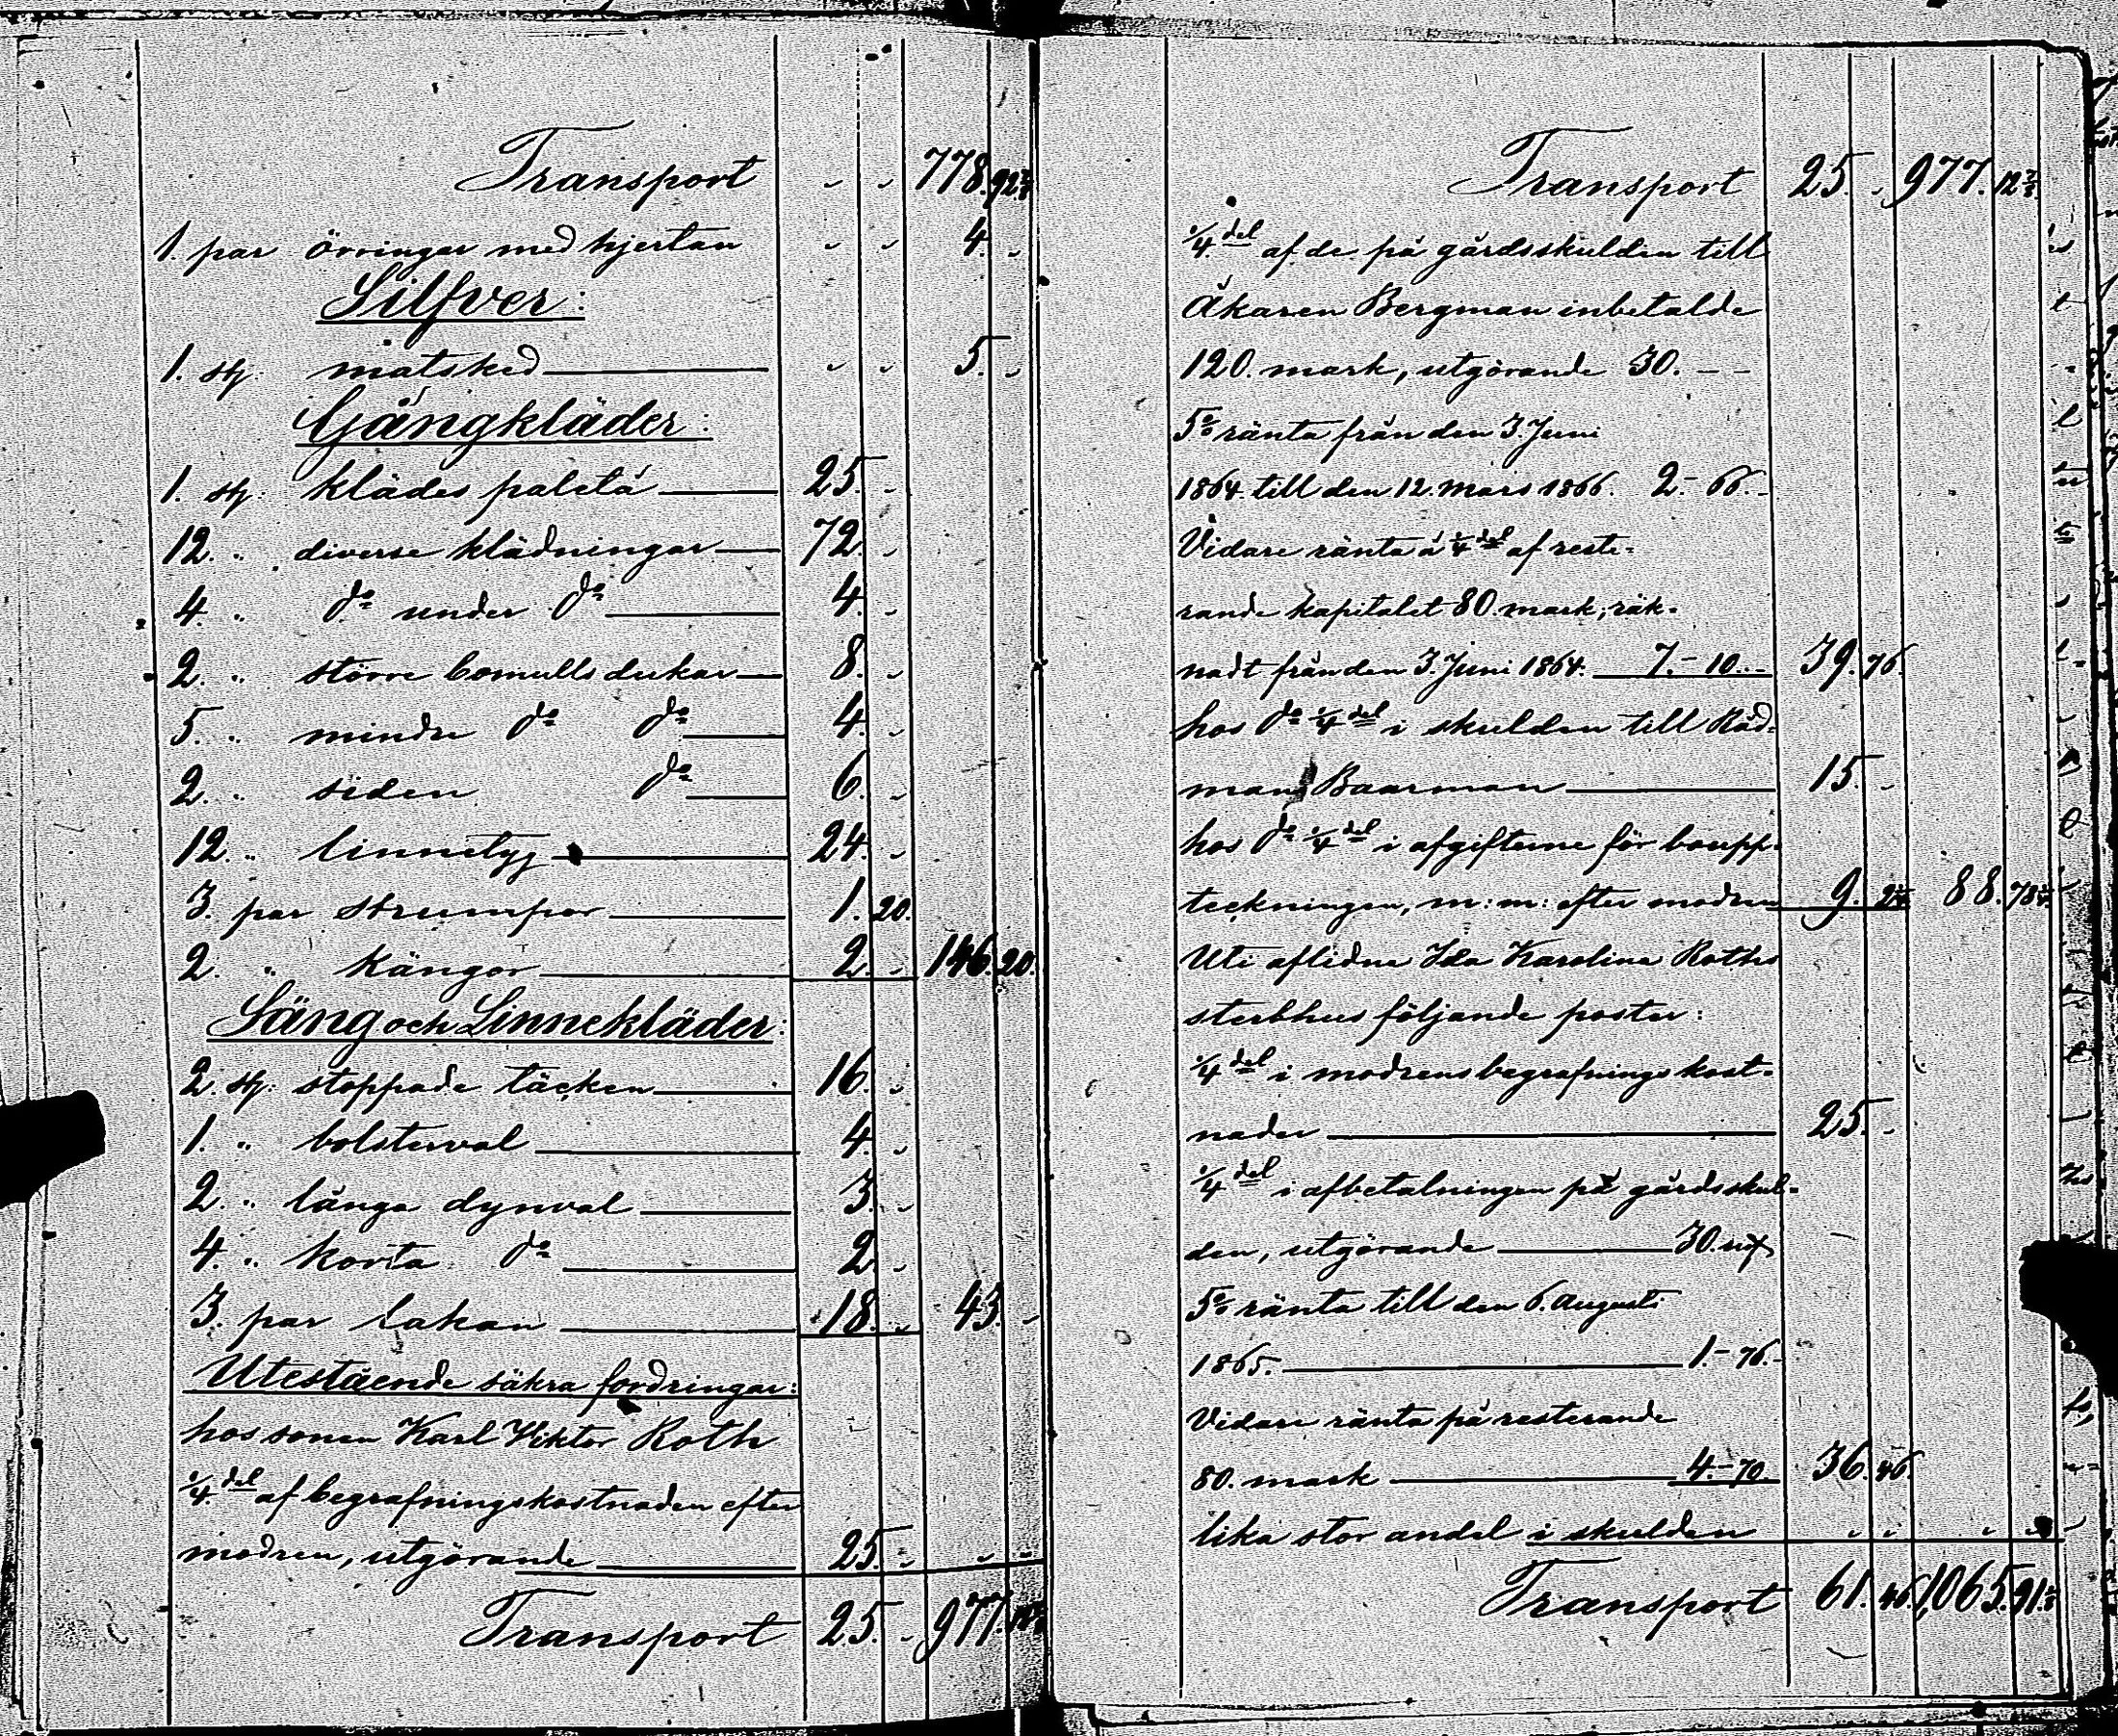 Transport " " 778. 92 7/8
1. par örringar med hjertan " " 4. "
Silfver:
1. st. matsked " " 5. "
Gångkläder:
1. st. klädes paletå 25. "
12. " diverse klädningar 72. "
4. " do under do 4. "
2. " större bomullsdukar 8. "
5. " mindre do do 4. "
2. " siden do 6. "
12. " linnetyg 24. "
3. par strumpor 1. 20.
2. " kängor 2. " 146. 20.
Säng och Linnekläder:
2. st. stoppade täcken 16. "
1. " bolsterval 4. "
2. " långa dynval 3. "
4. " korta do 2. "
3. par lakan 18. " 43. "
Utestående säkra fordringar:
hos sonen Karl Viktor Roth
1/4 del af begrafningskostnaden efter
modren, utgörande 25. " " "
Transport 25. " 977.
Transport 25. " 977. 12 7/8
1/4 del af de på gårdsskulden till
Åkaren Bergman inbetalde
120. mark, utgörande 30. – –
5% ränta från den 3. Juni
1864 till den 12. Mars 1866. 2.– 66.–
Vidare ränta å 1/4 del af reste-
rande kapitalet 80. mark, räk-
nadt från den 3. Juni 1864. 7.– 10.– 39. 76.
hos do 1/4 del i skulden till Råd-
man Baarman 15. "
hos do 1/4 del i afgifterne för boupp-
teckningen, m: m: efter modren 9. 88. 78
Uti aflidne Ida Karolina Roths
sterbhus följande poster:
1/4 del i modrens begrafningskost-
nader 25. "
1/4 del i afbetalningen på gårdsskul-
den, utgörande 30.
5% ränta till den 6. Augusti
1865. 1.– 76.–
Vidare ränta på resterande
80. mark 4.– 70 36. 46.
lika stor andel i skulden " " " "
Transport 61. 46. 1,065. 91